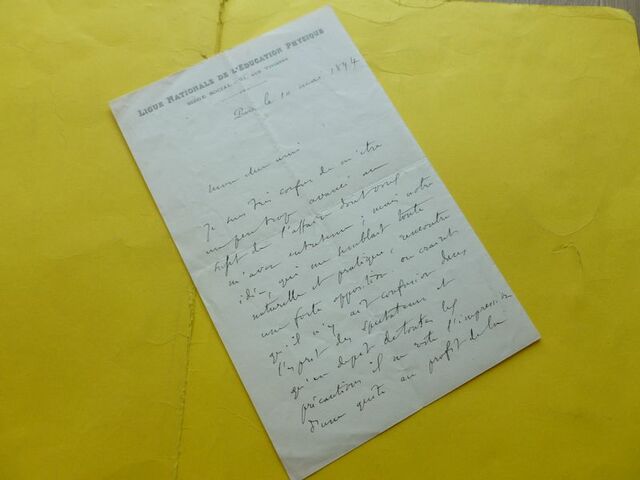 LIGUE NATIONALE DE L'ÉDUCATION PHYSIQUE
SIÈGE SOCIAL, 51, RUE VIVIENNE
le 10 mai 1894
Mon cher ami
Je suis très confus de m'être
un peu trop avancé au
sujet de l'affaire dont vous
m'avez entretenu ; mais notre
idée, qui me semblait toute
naturelle et pratique, rencontre
une forte opposition. On craint
qu'il n'y ait confusion dans
l'esprit des spectateurs et
qu'en dépit de toutes les
précautions il en reste l'impression
d'une quête au profit de la